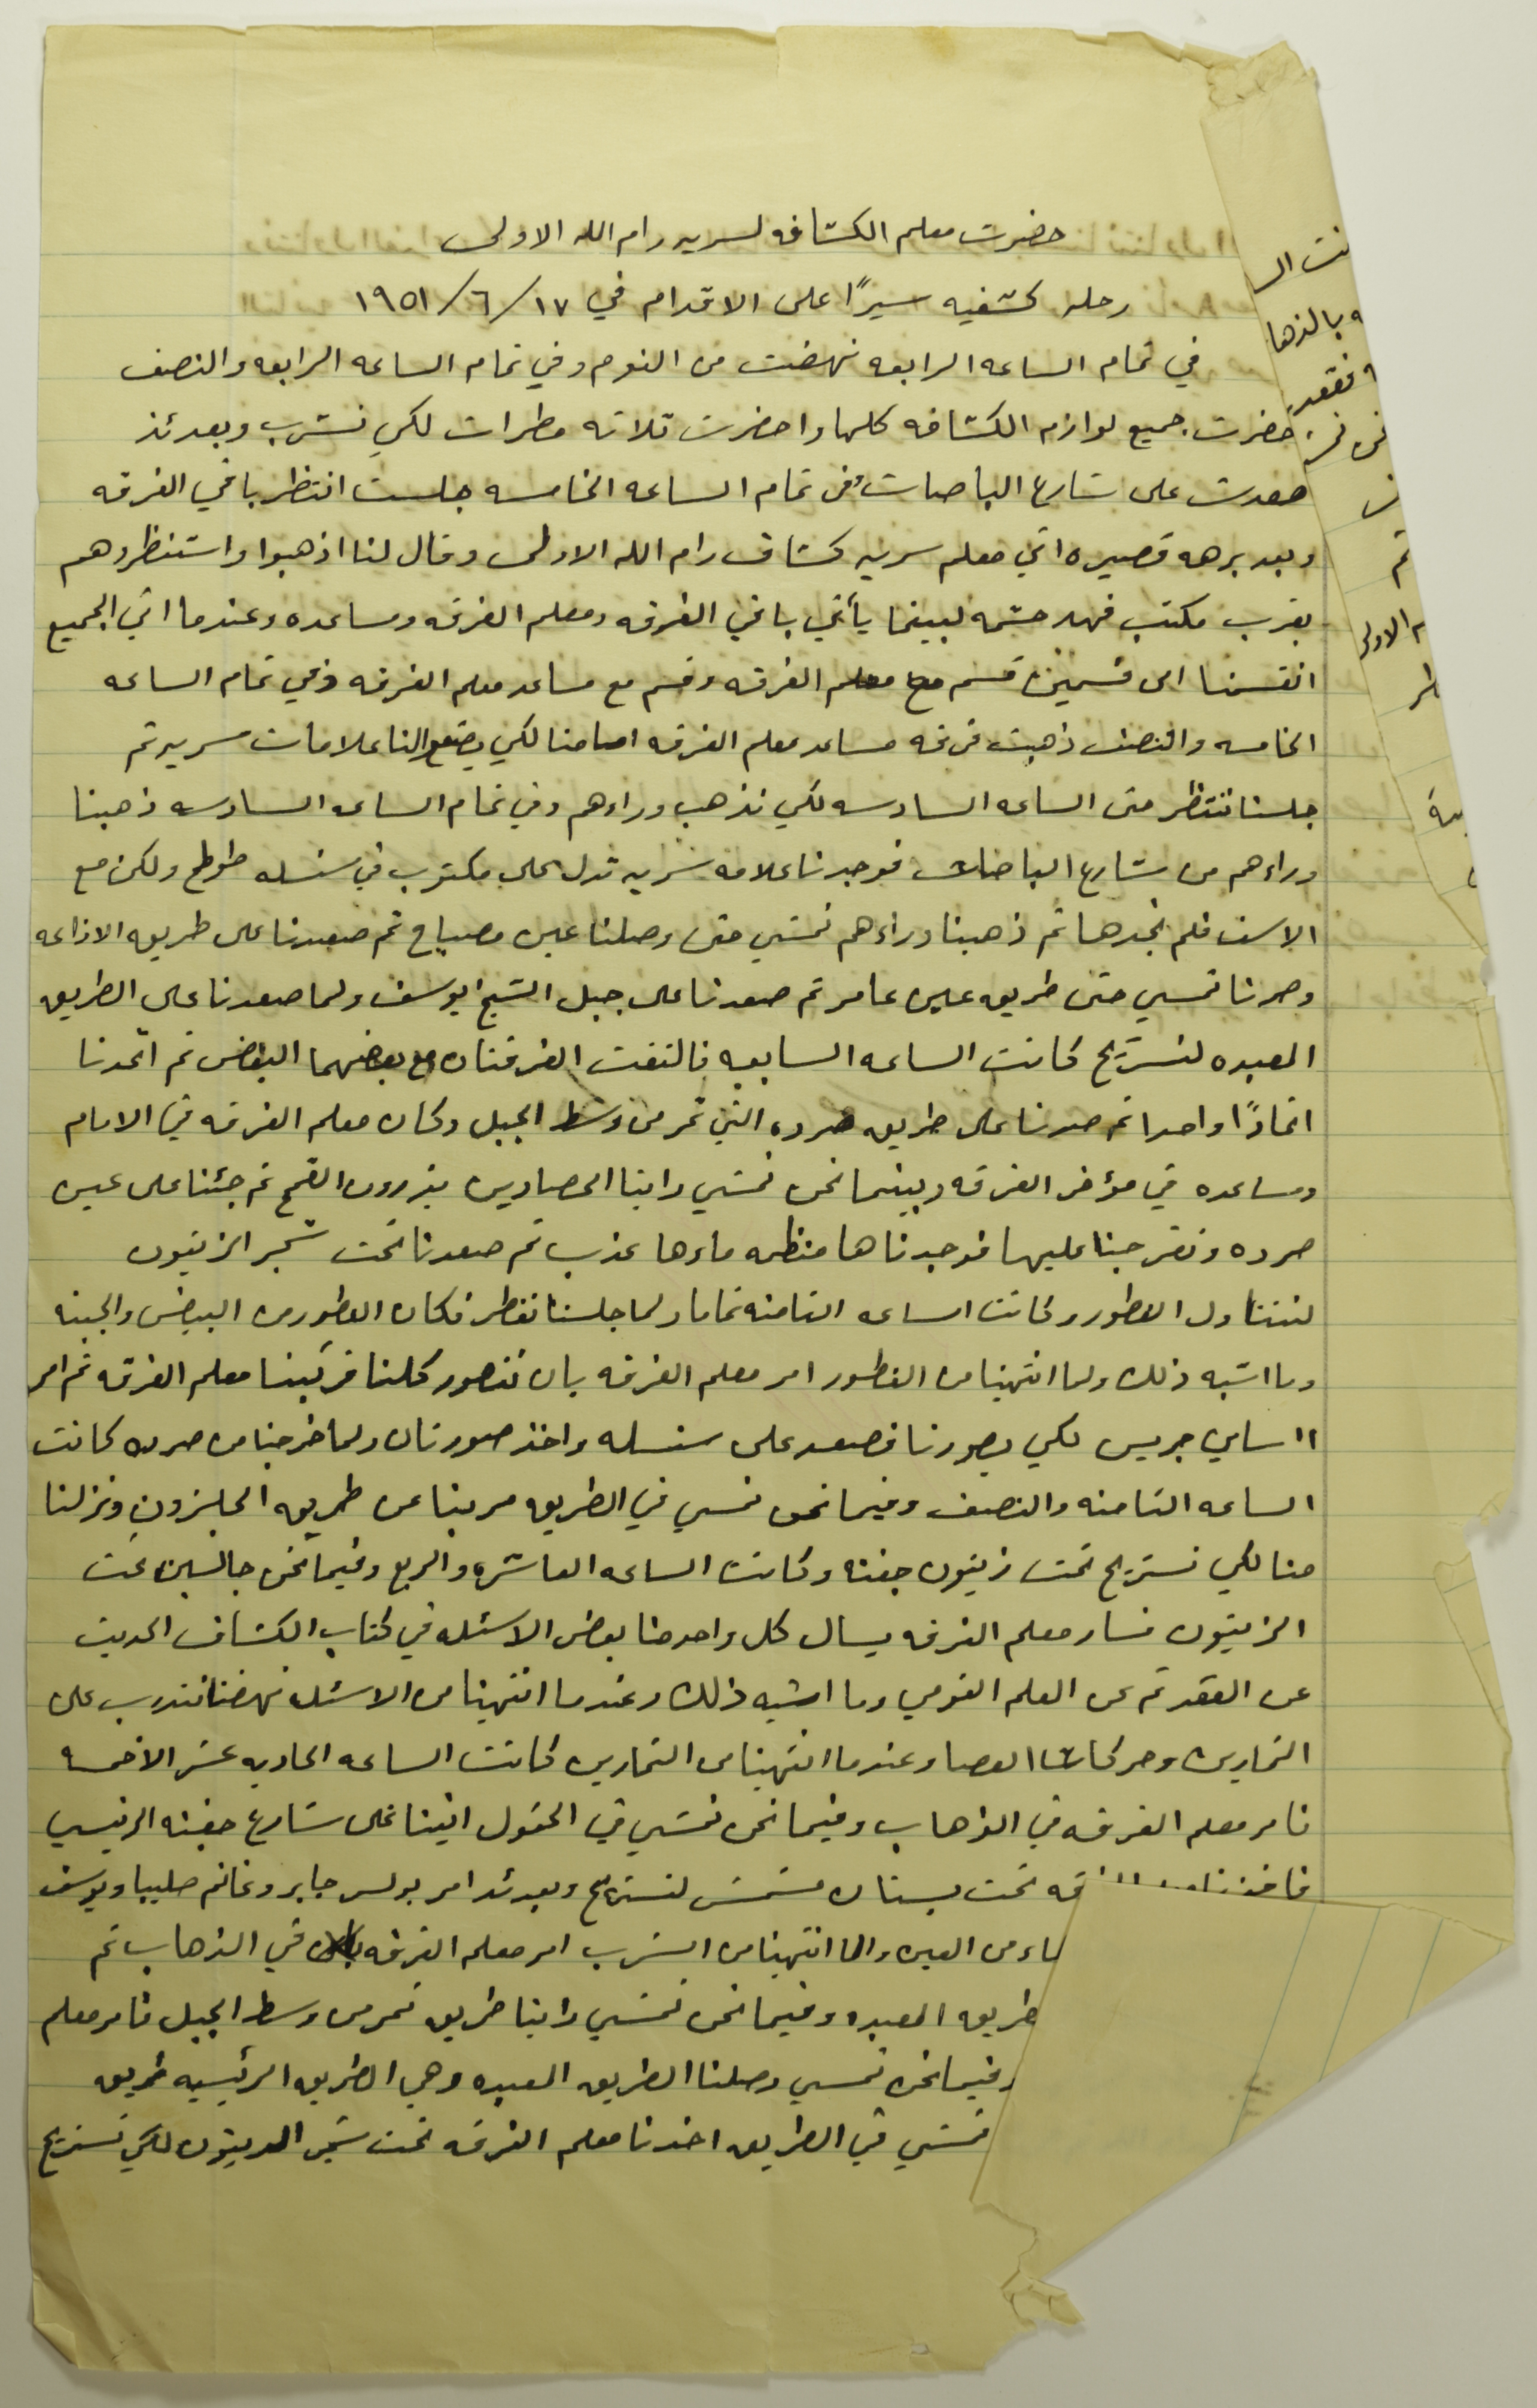 حضرت معلم الكشافه لسريه رام الله الاولى
رحله كشفيه سيرًا على الاقدام في ١٧/٦/١٩٥١
في تمام الساعه الرابعه نهضت من النوم وفي تمام الساعه الرابعه والنصف
حضرت جميع لوازم الكشافه كلها واحضرت ثلاثه مطرات لكي نشرب وبعدئذ
صعدت على شارع الباصات وفي تمام الساعه الخامسه جلست انتظر باقي الفرقه
وبعد برهه قصيره اتي معلم سريه كشاف رام الله الاولى وقال لنا اذهبوا واستنظروهم
بقرب مكتب فهد حشمه لبينما يأتي باقي الفرقه ومعلم الفرقه ومساعده وعندما اتي الجميع
انقسمنا الى قسمين قسم مع معلم الفرقه وقسم مع مساعد معلم الفرقه وفي تمام الساعه
الخامسه والنصف ذهبت فرقه مساعد معلم الفرقه امامنا لكي يضعوا لنا علامات سريه ثم
جلسنا ننتظر حتى الساعه السادسه لكي نذهب وراءهم وفي تمام الساعه السادسه ذهبنا
وراءهم من شارع الباصات فوجدنا علامه سريه تدل على مكتوب في سنسله طوطح ولكن مع
الاسف فلم نجدها ثم ذهبنا وراءهم نمشي حتى وصلنا عين مصباح ثم صعدنا على طريق الاذاعه
وصرنا نمسي حتى طريق عين عامر ثم صعدنا على جبل الشيخ يوسف ولما صعدنا على الطريق
المعبده لنستريح كانت الساعه السابعه فالتفت الفرقتان مع بعضهما البعض ثم اتحدنا
اتحادًا واحدا ثم صرنا على طريق صرده التي تمر من وسط الجبل وكان معلم الفرقه في الامام
ومساعده في مؤخر الفرقه وبينما نحن نمشي راينا الحصادين يذرون القمح ثم جئنا على عين
صرده وتفرجنا عليها فوجدناها منظمه ماءها عذب ثم صعدنا تحت شجر الزيتون
لنتناول الفطور وكانت الساعه الثامنه تماما ولما جلسنا نفطر فكان الفطور من البيض والجبنه
وما اشبه ذلك ولما انتهينا من الفطور امر معلم الفرقه بان نتصور كلنا فركبنا معلم الفرقه ثم امر
اا سامي جريس لكي يصورنا فصعد على سنسله واخذ صورتان ولما خرجنا من صرده كانت
الساعه الثامنه والنصف وفيما نحن نمسي في الطريق مربنا عن طريق الحلزون ونزلنا
منا لكي نستريح تحت زيتون جفنه وكانت الساعه العاشره والربع وفيما نحن جالسين تحت
الزيتون فسار معلم الفرقه يسال كل واحد منا بعض الاسئله في كتاب الكشاف الحديث
عن العقد ثم عن العلم القومي وما اشبه ذلك وعندما انتهينا من الاسئله نهضنا نتدرب على
التمارين وحركات العصا وعندما انتهينا من التمارين كانت الساعه الحاديه عشر الاخمسه
فامر معلم الفرقه في الذهاب وفيما نحن نمشي في الحقول اتينا على شارع جفنه الرئيسي
فاخذنا قه تحت بستان مشمش لنستريح وبعدئد امر بولس جابر وغانم صليبا ويوسف
ماء من العين والما انتهينا من الشرب امر معلم الفرقه في الذهاب ثم
طريق المعبده وفيما نحن نمشي راينا طريق تمر من وسط الجبل فامر معلم
وفيما نحن نمسي وصلنا الطريق المعبده وهي الطريق الرئيسيه طريق
نمشي في الطريق اخدنا معلم الفرقه تحت شجر الزيتون لكي نستريح
نت ال
ه بالذها
فقعد
ثم
م الاولى
طر